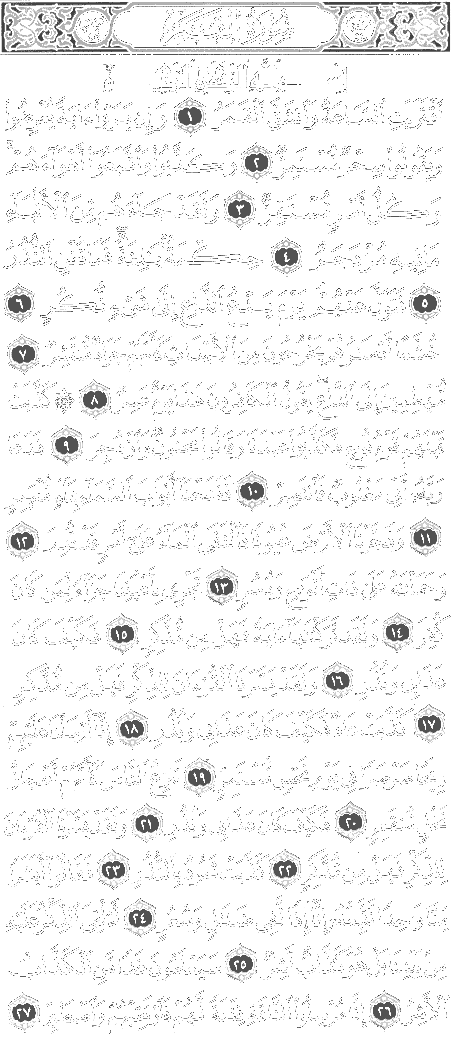 سُورَةُ القَمَرِ
بِسْمِ ٱللَّهِ ٱلرَّحْمَٰنِ ٱلرَّحِيمِ
ٱقْتَرَبَتِ ٱلسَّاعَةُ وَٱنشَقَّ ٱلْقَمَرُ ١ وَإِن يَرَوْا۟ ءَايَةً يُعْرِضُوا۟
وَيَقُولُوا۟ سِحْرٌ مُّسْتَمِرٌّ ٢ وَكَذَّبُوا۟ وَٱتَّبَعُوٓا۟ أَهْوَآءَهُمْ
وَكُلُّ أَمْرٍ مُّسْتَقِرٌّ ٣ وَلَقَدْ جَآءَهُم مِّنَ ٱلْأَنۢبَآءِ
مَا فِيهِ مُزْدَجَرٌ ٤ حِكْمَةٌۢ بَٰلِغَةٌ فَمَا تُغْنِ ٱلنُّذُرُ
٥ فَتَوَلَّ عَنْهُمْ يَوْمَ يَدْعُ ٱلدَّاعِ إِلَىٰ شَىْءٍ نُّكُرٍ ٦
خُشَّعًا أَبْصَٰرُهُمْ يَخْرُجُونَ مِنَ ٱلْأَجْدَاثِ كَأَنَّهُمْ جَرَادٌ مُّنتَشِرٌ ٧
مُّهْطِعِينَ إِلَى ٱلدَّاعِ يَقُولُ ٱلْكَٰفِرُونَ هَٰذَا يَوْمٌ عَسِرٌ ٨ ۞ كَذَّبَتْ
قَبْلَهُمْ قَوْمُ نُوحٍ فَكَذَّبُوا۟ عَبْدَنَا وَقَالُوا۟ مَجْنُونٌ وَٱزْدُجِرَ ٩ فَدَعَا
رَبَّهُۥٓ أَنِّى مَغْلُوبٌ فَٱنتَصِرْ ١٠ فَفَتَحْنَآ أَبْوَٰبَ ٱلسَّمَآءِ بِمَآءٍ مُّنْهَمِرٍ
١١ وَفَجَّرْنَا ٱلْأَرْضَ عُيُونًا فَٱلْتَقَى ٱلْمَآءُ عَلَىٰٓ أَمْرٍ قَدْ قُدِرَ ١٢
وَحَمَلْنَٰهُ عَلَىٰ ذَاتِ أَلْوَٰحٍ وَدُسُرٍ ١٣ تَجْرِى بِأَعْيُنِنَا جَزَآءً لِّمَن كَانَ
كُفِرَ ١٤ وَلَقَد تَّرَكْنَٰهَآ ءَايَةً فَهَلْ مِن مُّدَّكِرٍ ١٥ فَكَيْفَ كَانَ
عَذَابِى وَنُذُرِ ١٦ وَلَقَدْ يَسَّرْنَا ٱلْقُرْءَانَ لِلذِّكْرِ فَهَلْ مِن مُّدَّكِرٍ
١٧ كَذَّبَتْ عَادٌ فَكَيْفَ كَانَ عَذَابِى وَنُذُرِ ١٨ إِنَّآ أَرْسَلْنَا عَلَيْهِمْ
رِيحًا صَرْصَرًا فِى يَوْمِ نَحْسٍ مُّسْتَمِرٍّ ١٩ تَنزِعُ ٱلنَّاسَ كَأَنَّهُمْ أَعْجَازُ
نَخْلٍ مُّنقَعِرٍ ٢٠ فَكَيْفَ كَانَ عَذَابِى وَنُذُرِ ٢١ وَلَقَدْ يَسَّرْنَا ٱلْقُرْءَانَ
لِلذِّكْرِ فَهَلْ مِن مُّدَّكِرٍ ٢٢ كَذَّبَتْ ثَمُودُ بِٱلنُّذُرِ ٢٣ فَقَالُوٓا۟ أَبَشَرًا
مِّنَّا وَٰحِدًا نَّتَّبِعُهُۥٓ إِنَّآ إِذًا لَّفِى ضَلَٰلٍ وَسُعُرٍ ٢٤ أَءُلْقِىَ ٱلذِّكْرُ عَلَيْهِ
مِنۢ بَيْنِنَا بَلْ هُوَ كَذَّابٌ أَشِرٌ ٢٥ سَيَعْلَمُونَ غَدًا مَّنِ ٱلْكَذَّابُ
ٱلْأَشِرُ ٢٦ إِنَّا مُرْسِلُوا۟ ٱلنَّاقَةِ فِتْنَةً لَّهُمْ فَٱرْتَقِبْهُمْ وَٱصْطَبِرْ ٢٧